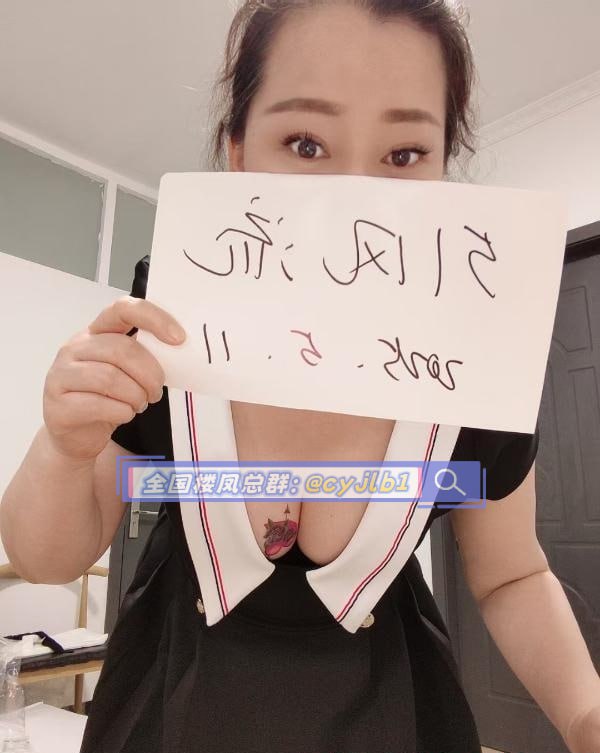 引风流
2025.5.11
全国楼凤总群:@cyjlb1